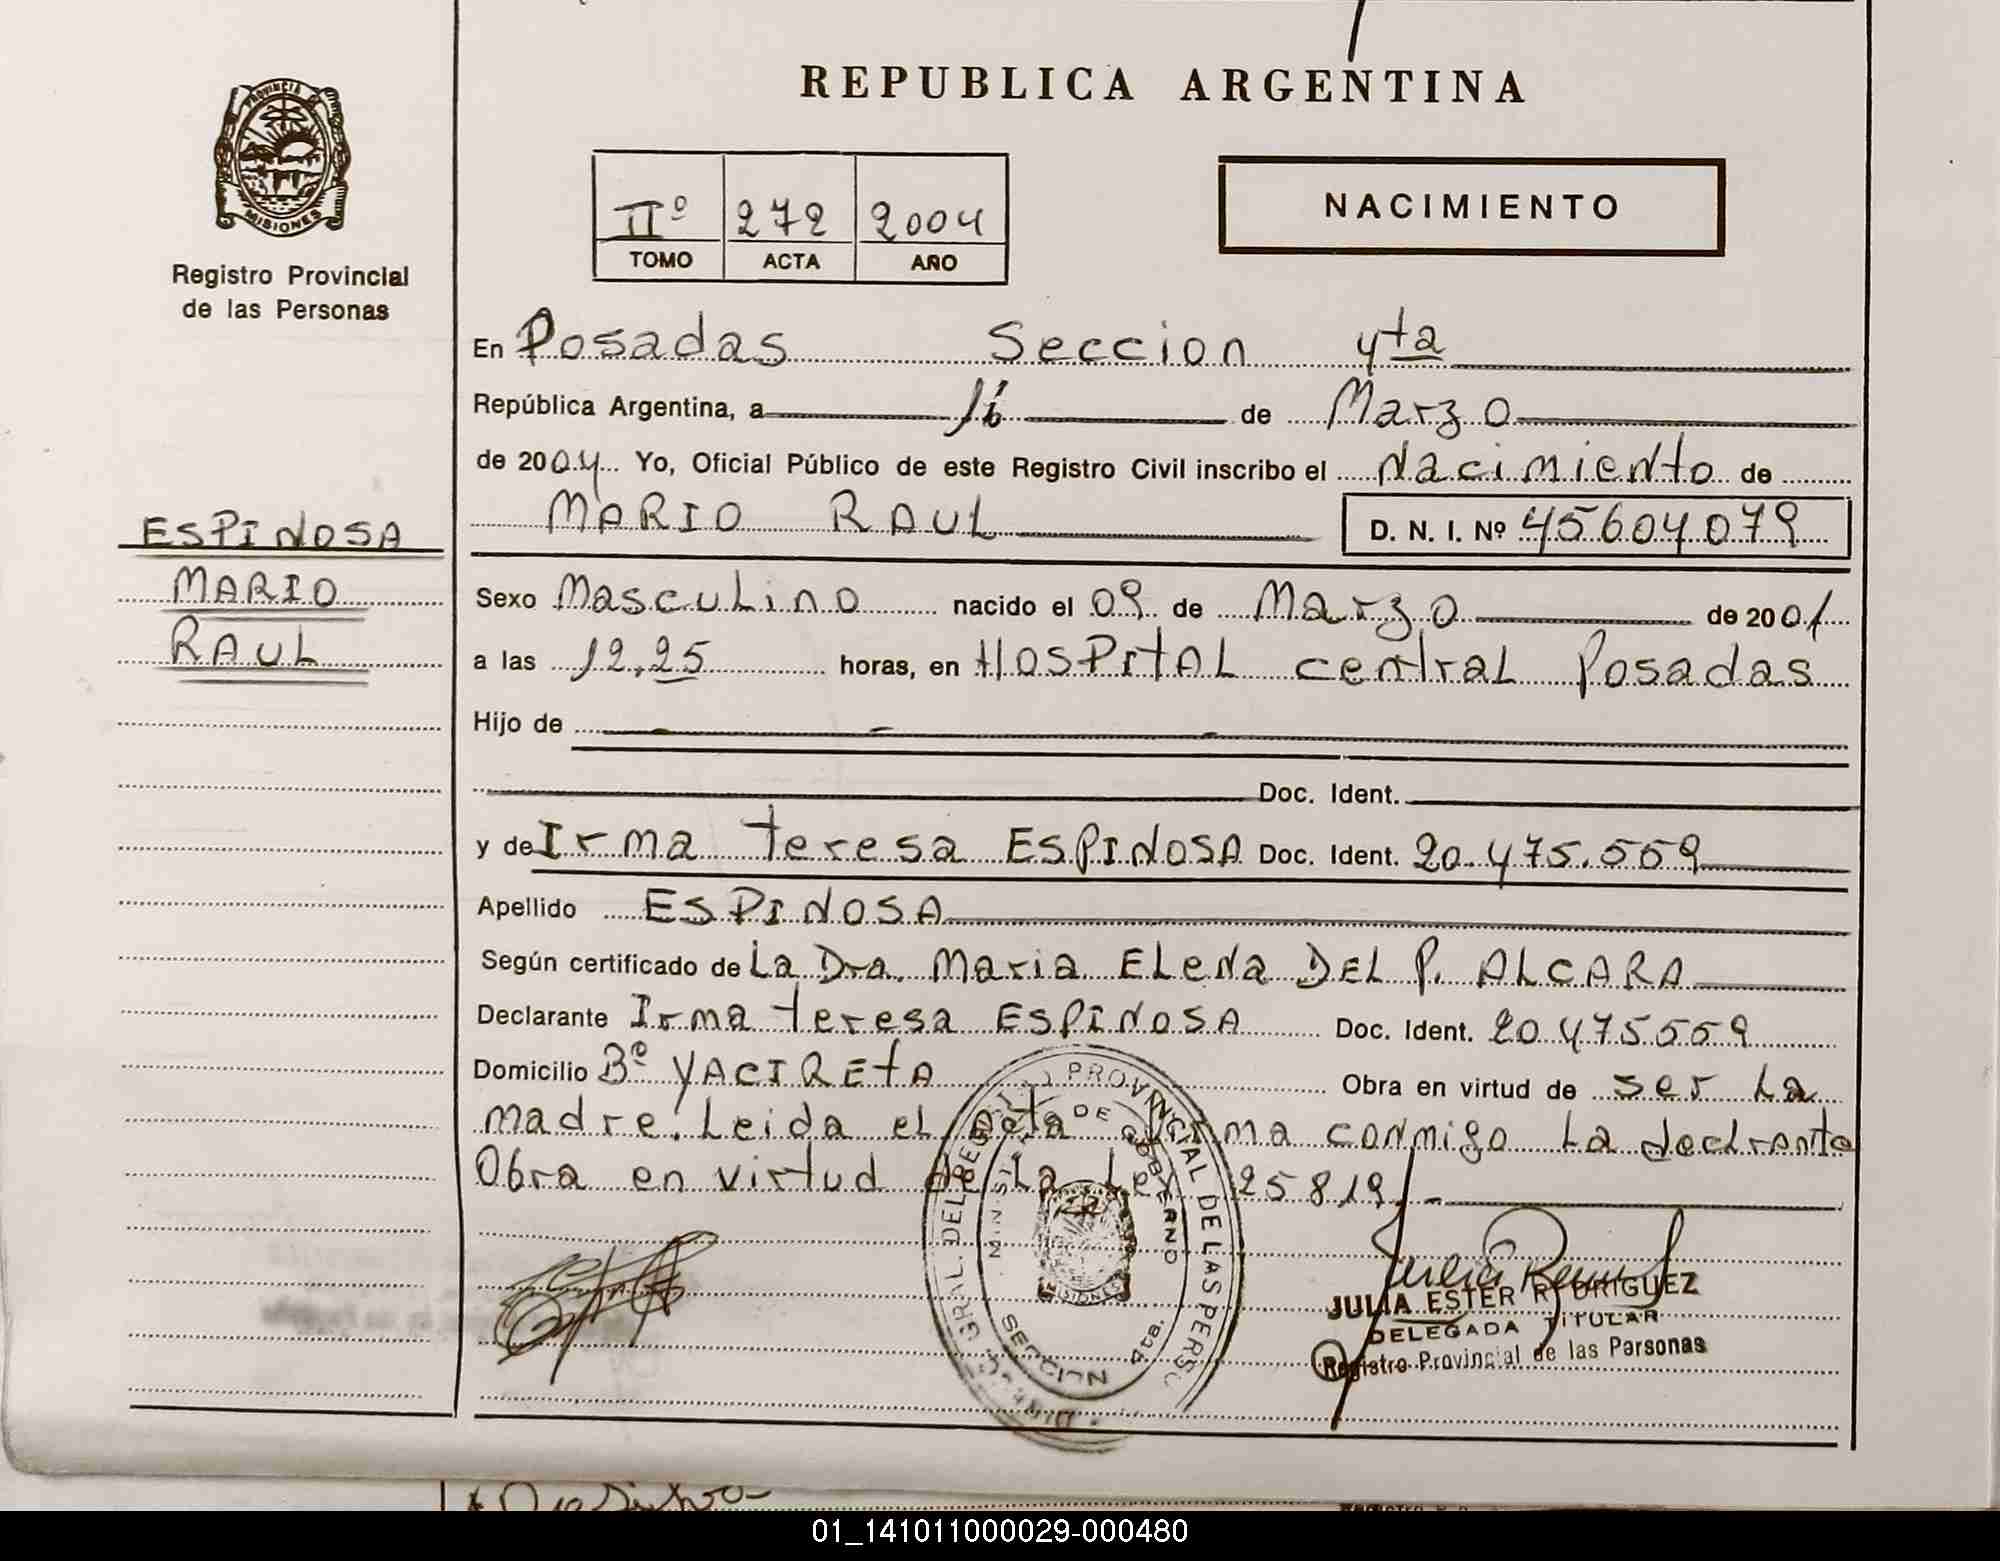 REPUBLICA ARGENTINA
PROVINCIA DE
MISIONES
Registro Provincial
de las Personas
IIº 272 2004
TOMO ACTA AÑO
NACIMIENTO
En Posadas Seccion 4ta
República Argentina, a 16 de Marzo
de 2004 Yo, Oficial Público de este Registro Civil inscribo el Nacimiento de
MARIO RAUL D. N. I. Nº 45604079
ESPINOSA
MARIO
RAUL
Sexo Masculino nacido el 09 de Marzo de 2001
a las 12,25 horas, en HOSPITAL central Posadas
Hijo de
Doc. Ident.
y de Irma teresa ESPINOSA Doc. Ident. 20.475.559
Apellido ESPINOSA
Según certificado de La Dra. Maria ELena DEL P. ALCARA
Declarante Irma teresa ESPINOSA Doc. Ident. 20.475559
Domicilio Bº YACIRETA Obra en virtud de ser La
madre. Leida el Acta Firma conmigo La declrante
Obra en virtud de La Ley 25819.-
PROVINCIAL DE LAS PERSO
GRAL. DEL REGISTRO
DE GOBIERNO
MISIONES
SECCION 4ta.
JULIA ESTER RODRIGUEZ
DELEGADA TITULAR
Registro Provincial de las Personas
01_141011000029-000480